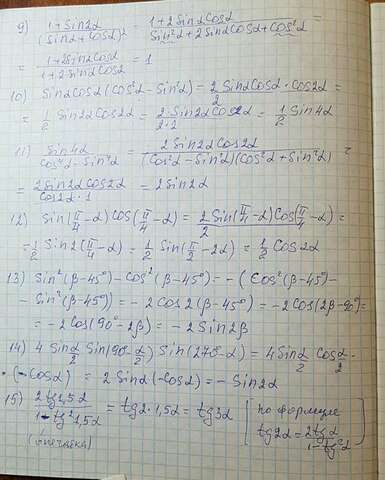 9) (1+Sin2α)/(Sinα+Cosα)² = (1+2SinαCosα)/(Sin²α+2SinαCosα+Cos²α) =
= (1+2SinαCosα)/(1+2SinαCosα) = 1
10) SinαCosα(Cos²α-Sin²α) = (2SinαCosα)/2 · Cos2α =
= 1/2 Sin2αCos2α = (2·Sin2αCos2α)/(2·2) = 1/2 Sin4α
11) Sin4α/(Cos⁴α-Sin⁴α) = (2Sin2αCos2α)/((Cos²α-Sin²α)(Cos²α+Sin²α)) =
= (2Sin2αCos2α)/(Cos2α·1) = 2Sin2α
12) Sin(π/4-α)Cos(π/4-α) = (2Sin(π/4-α)Cos(π/4-α))/2 =
= 1/2 Sin2(π/4-α) = 1/2 Sin(π/2-2α) = 1/2 Cos2α
13) Sin²(β-45°)-Cos²(β-45°) = -(Cos²(β-45°)-
- Sin²(β-45°)) = -2Cos2(β-45°) = -2Cos(2β-90°) =
= -2Cos(90°-2β) = -2Sin2β
14) 4Sin α/2 Sin(90-α/2) Sin(270°-α) = 4Sin α/2 Cos α/2 ·
·(-Cosα) = 2Sinα(-Cosα) = -Sin2α
15) (2tg1,5α)/(1-tg²1,5α) = tg2·1,5α = tg3α [по формуле
(опечатка) tg2α = 2tgα/(1-tg²α)